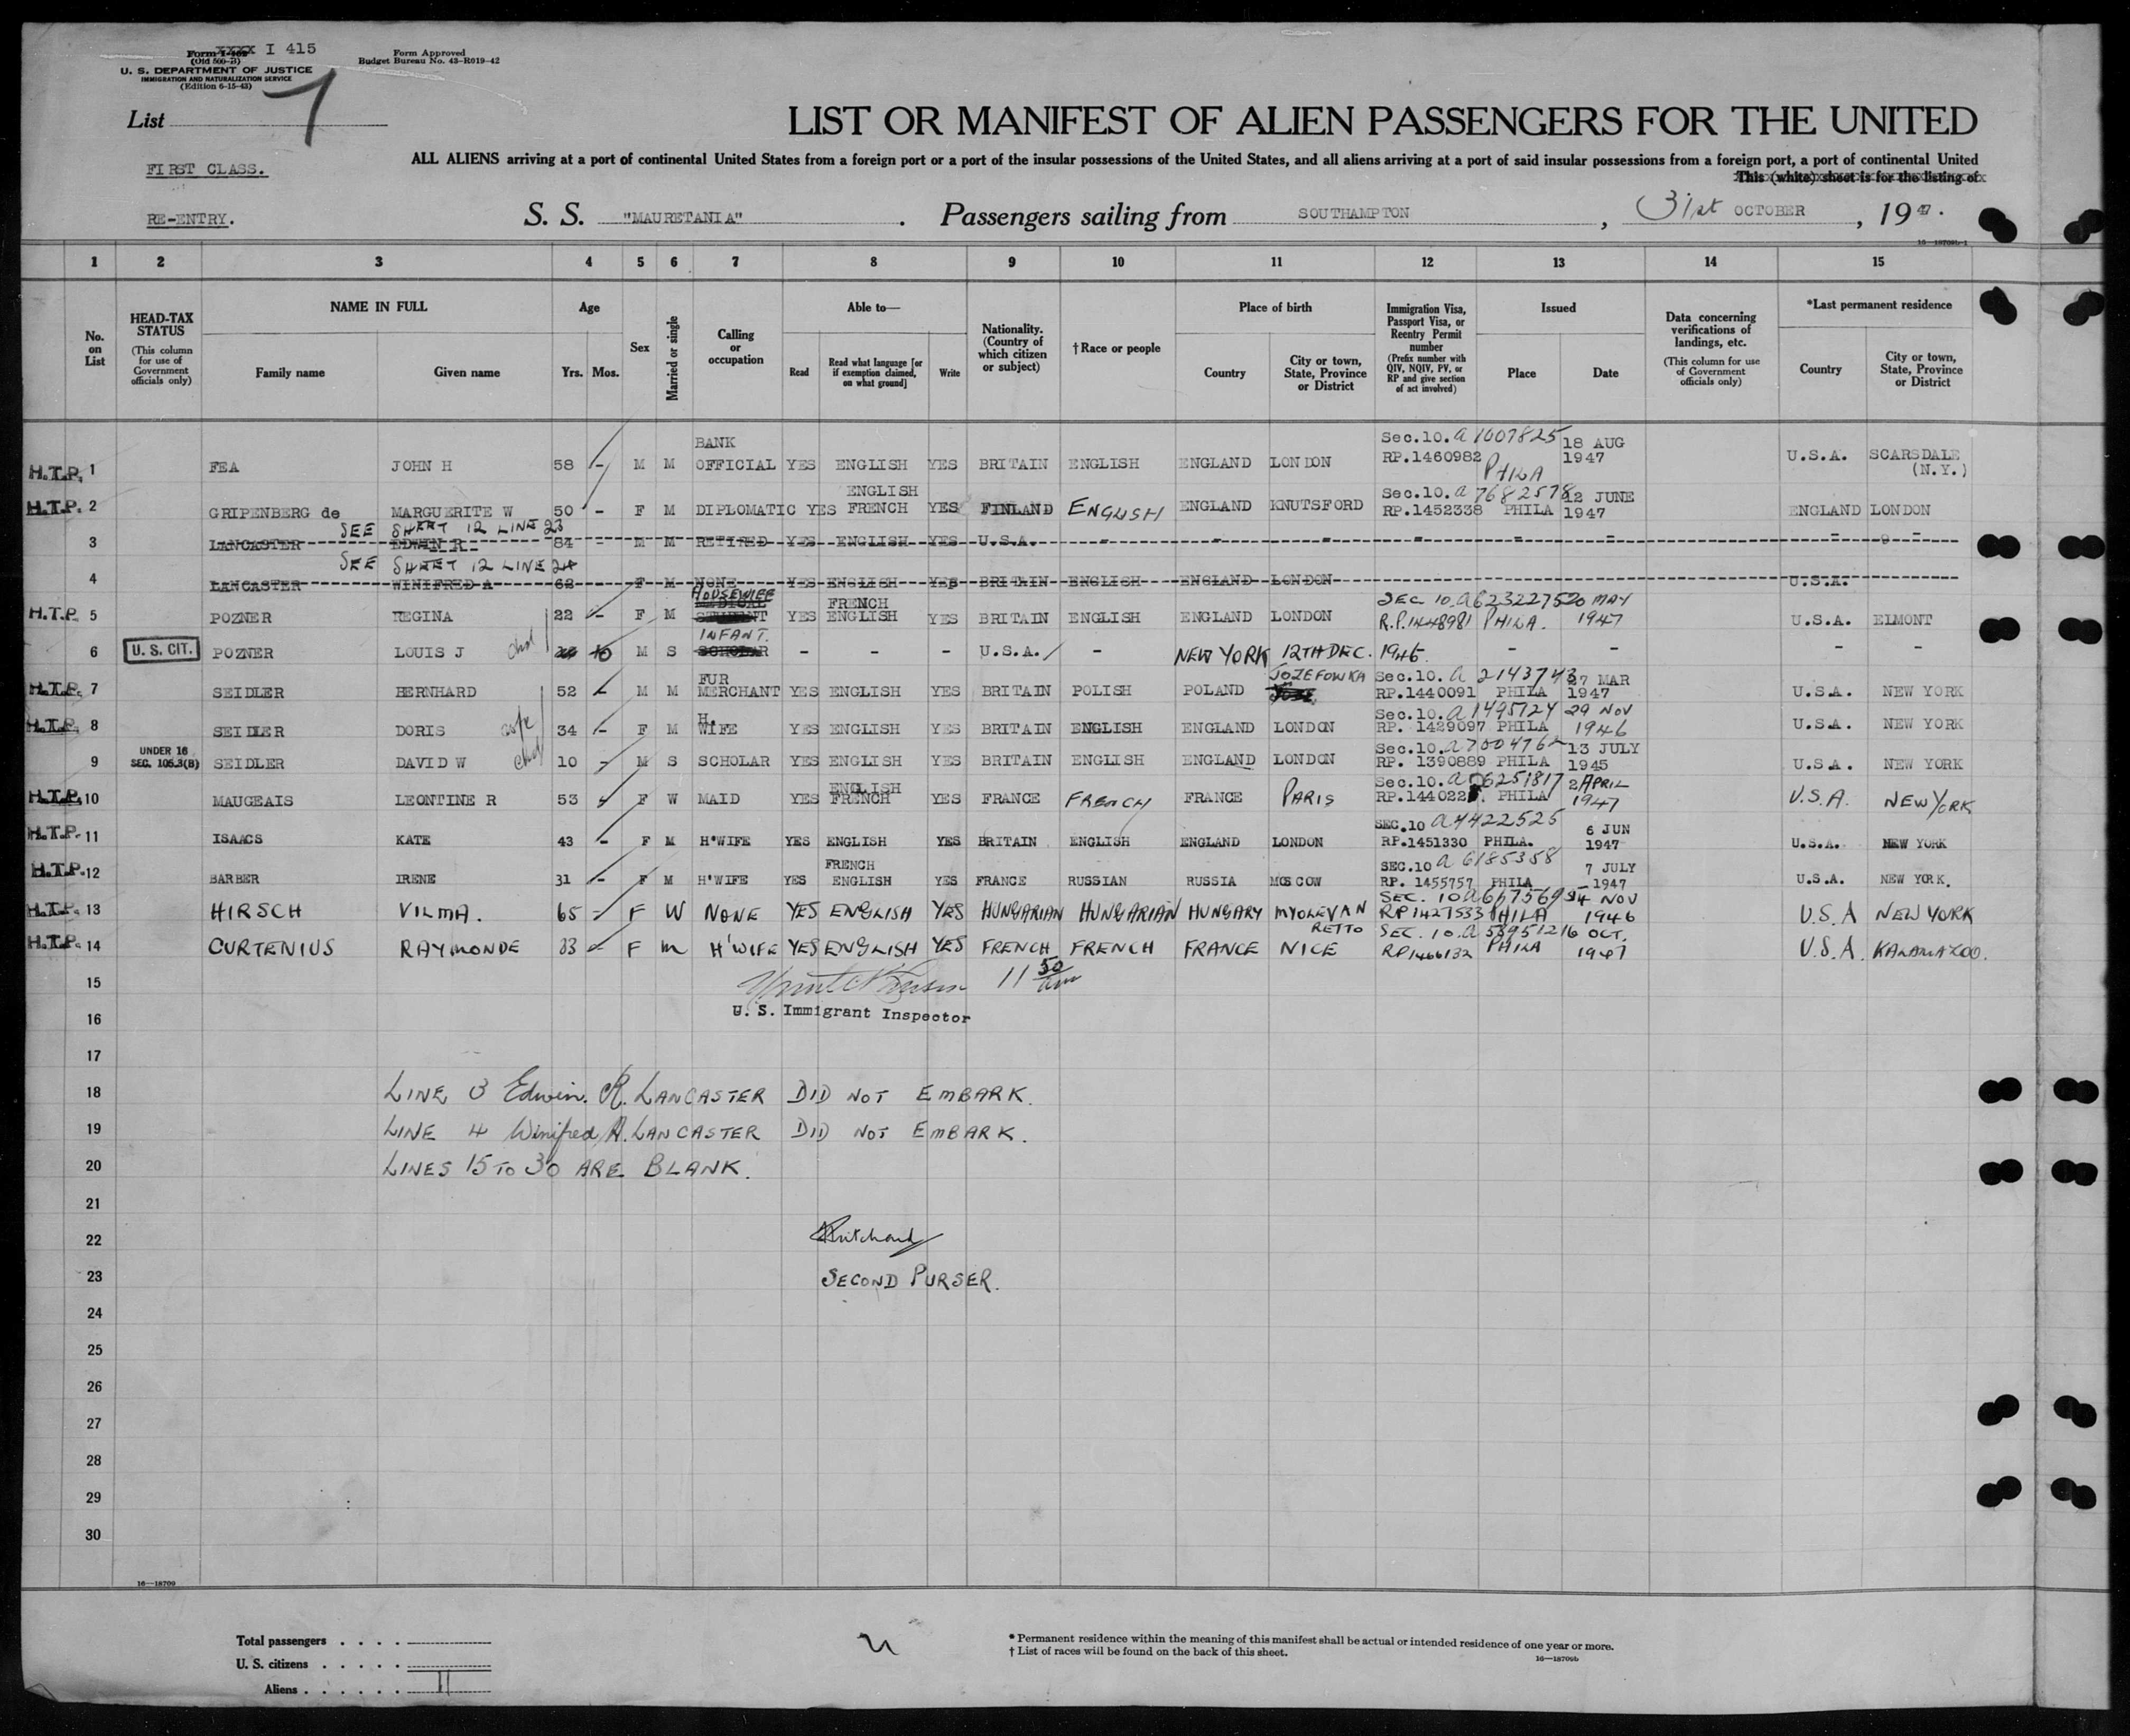 Form I-409 XXXX I 415
(Old 500-B)
U. S. DEPARTMENT OF JUSTICE
IMMIGRATION AND NATURALIZATION SERVICE
(Edition 6-15-43)
Form Approved
Budget Bureau No. 43-R019-42
List 7
LIST OR MANIFEST OF ALIEN PASSENGERS FOR THE UNITED
ALL ALIENS arriving at a port of continental United States from a foreign port or a port of the insular possessions of the United States, and all aliens arriving at a port of said insular possessions from a foreign port, a port of continental United
This (white) sheet is for the listing of
FIRST CLASS.
RE-ENTRY.
S. S. "MAURETANIA". Passengers sailing from SOUTHAMPTON, 31st OCTOBER, 1947.
16—18709b-1
1 2 3 4 5 6 7 8 9 10 11 12 13 14 15
No. on List
HEAD-TAX STATUS (This column for use of Government officials only)
NAME IN FULL
Family name Given name
Age
Yrs. Mos.
Sex
Married or single
Calling or occupation
Able to—
Read Read what language [or if exemption claimed, on what ground] Write
Nationality. (Country of which citizen or subject)
†Race or people
Place of birth
Country City or town, State, Province or District
Immigration Visa, Passport Visa, or Reentry Permit number (Prefix number with QIV, NQIV, PV, or RP and give section of act involved)
Issued
Place Date
Data concerning verifications of landings, etc. (This column for use of Government officials only)
*Last permanent residence
Country City or town, State, Province or District
H.T.P. 1 FEA JOHN H 58 - M M BANK OFFICIAL YES ENGLISH YES BRITAIN ENGLISH ENGLAND LONDON Sec.10. a 1007825 RP.1460982 PHILA 18 AUG 1947 U.S.A. SCARSDALE (N.Y.)
H.T.P. 2 GRIPENBERG de MARGUERITE W 50 - F M DIPLOMATIC YES ENGLISH FRENCH YES FINLAND ENGLISH ENGLAND KNUTSFORD Sec.10. a 7682578 RP.1452338 PHILA 12 JUNE 1947 ENGLAND LONDON
SEE SHEET 12 LINE 23
3 LANCASTER EDWIN R. 84 - M M RETIRED YES ENGLISH YES U.S.A. - - - - - - - -
SEE SHEET 12 LINE 24
4 LANCASTER WINIFRED A 62 - F M NONE YES ENGLISH YES BRITAIN ENGLISH ENGLAND LONDON U.S.A.
H.T.P. 5 POZNER REGINA 22 - F M HOUSEWIFE YES FRENCH ENGLISH YES BRITAIN ENGLISH ENGLAND LONDON SEC. 10. a6232275 R.P.1448981 PHILA. 20 MAY 1947 U.S.A. ELMONT
6 U. S. CIT. POZNER LOUIS J chd 10 M S INFANT. SCHOLAR - - - U.S.A. - NEW YORK 12TH DEC. 1946. - - - -
H.T.P. 7 SEIDLER BERNHARD 52 - M M FUR MERCHANT YES ENGLISH YES BRITAIN POLISH POLAND JOZEFOWKA Sec.10. a 2143743 RP.1440091 PHILA 27 MAR 1947 U.S.A. NEW YORK
H.T.P. 8 SEIDLER DORIS wife 34 - F M H. WIFE YES ENGLISH YES BRITAIN ENGLISH ENGLAND LONDON Sec.10. a1495724 RP. 1429097 PHILA 29 NOV 1946 U.S.A. NEW YORK
9 UNDER 16 SEC. 105.3(B) SEIDLER DAVID W chd 10 - M S SCHOLAR YES ENGLISH YES BRITAIN ENGLISH ENGLAND LONDON Sec.10. a7004762 RP. 1390889 PHILA 13 JULY 1945 U.S.A. NEW YORK
H.T.P. 10 MAUGEAIS LEONTINE R 53 F W MAID YES ENGLISH FRENCH YES FRANCE FRENCH FRANCE PARIS Sec.10. a 6251817 RP.144022 PHILA 2 APRIL 1947 U.S.A. NEW YORK
H.T.P. 11 ISAACS KATE 43 - F M H'WIFE YES ENGLISH YES BRITAIN ENGLISH ENGLAND LONDON SEC.10 a4422525 RP.1451330 PHILA. 6 JUN 1947 U.S.A. NEW YORK
H.T.P. 12 BARBER IRENE 31 - F M H'WIFE YES FRENCH ENGLISH YES FRANCE RUSSIAN RUSSIA MOSCOW SEC.10 a 6185358 RP. 1455757 PHILA 7 JULY 1947 U.S.A. NEW YORK.
H.T.P. 13 HIRSCH VILMA. 65 - F W NONE YES ENGLISH YES HUNGARIAN HUNGARIAN HUNGARY MYOLEVAN RETTO SEC. 10 RP1427533 PHILA NOV 1946 U.S.A NEW YORK
H.T.P. 14 CURTENIUS RAYMONDE 33 - F M H'WIFE YES ENGLISH YES FRENCH FRENCH FRANCE NICE SEC. 10. a RP1466132 PHILA 16 OCT. 1947 U.S.A. KALAMAZOO.
15 11 50 am
16 U. S. Immigrant Inspector
17
18 LINE 3 Edwin. R. LANCASTER DID NOT EMBARK.
19 LINE 4 Winifred A. LANCASTER DID NOT EMBARK.
20 LINES 15 TO 30 ARE BLANK.
21
22 Pritchard
23 SECOND PURSER.
24
25
26
27
28
29
30
16—18709
Total passengers
U. S. citizens
Aliens 11
* Permanent residence within the meaning of this manifest shall be actual or intended residence of one year or more.
† List of races will be found on the back of this sheet.
16—18709b